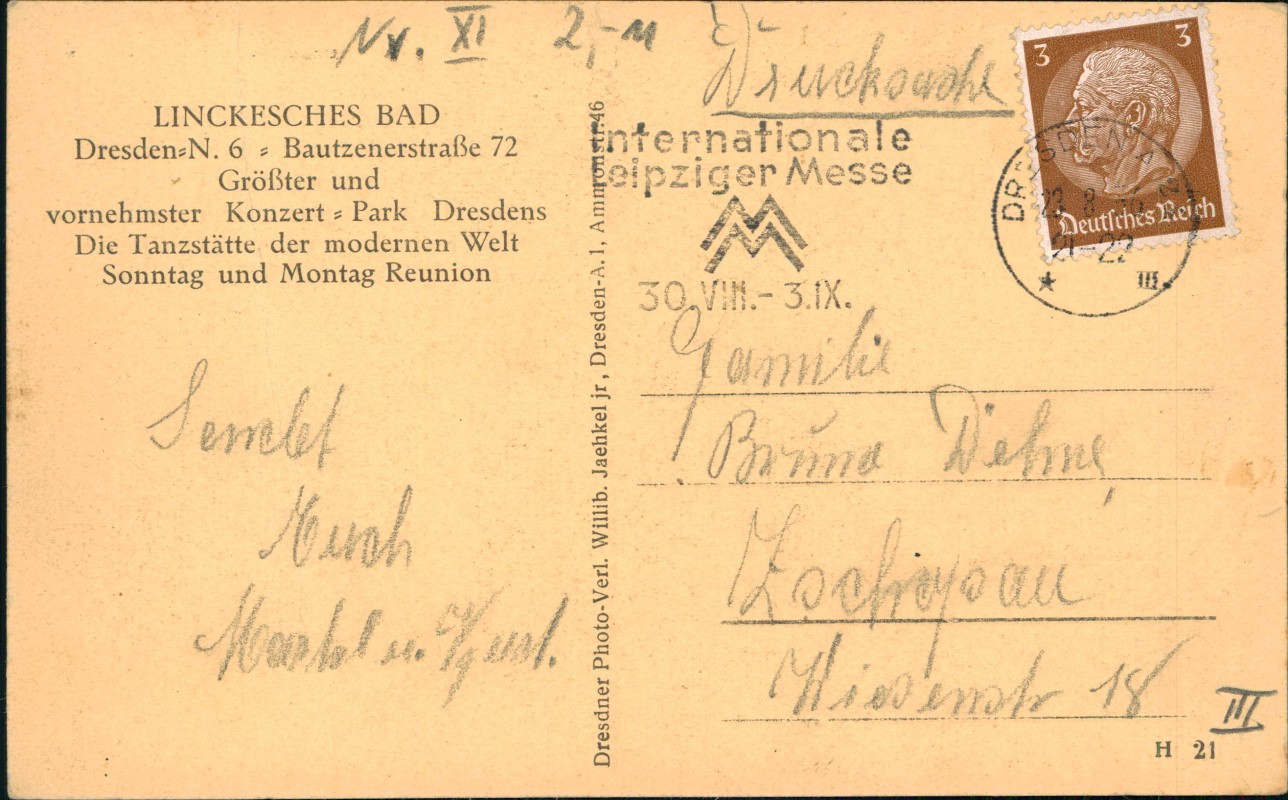 Nr. XI 2,-
Drucksache
LINCKESCHES BAD
Dresden=N. 6 = Bautzenerstraße 72
Größter und
vornehmster Konzert = Park Dresdens
Die Tanzstätte der modernen Welt
Sonntag und Montag Reunion
Sendet
Euch
u.
Dresdner Photo-Verl. Willib. Jaehkel jr, Dresden-A. 1, Ammonstr. 46
Internationale
Leipziger Messe
30.VIII.-3.IX.
3 3
Deutsches Reich
DRESDEN A
23.8.
21-22
★ III.
Familie
Bruno Dehme,
Zschopau
Wiesenstr 18
III
H 21